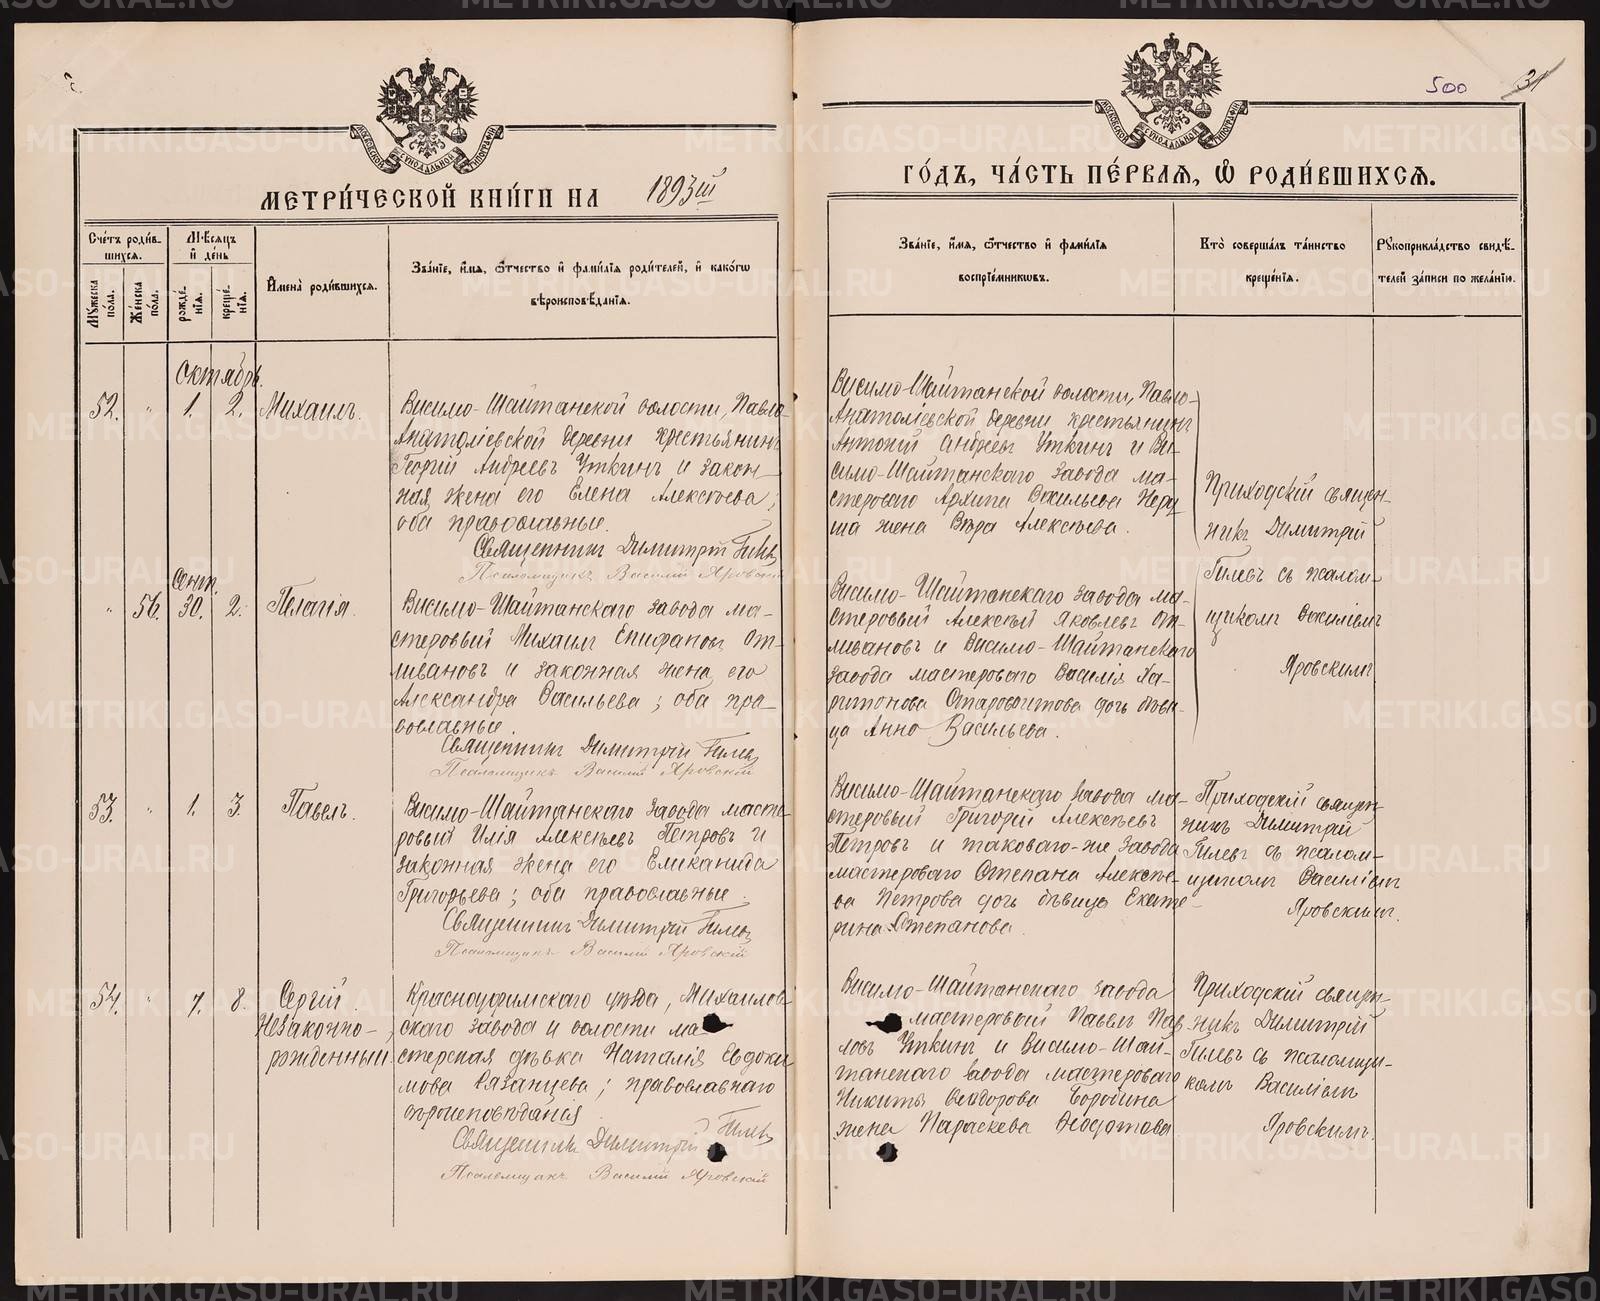 500 31
МОСКОВСКОЙ СѴНОДАЛЬНОЙ ТИПОГРАФІИ
МОСКОВСКОЙ СѴНОДАЛЬНОЙ ТИПОГРАФІИ
МЕТРИ́ЧЕСКОЙ КНИ́ГИ НА 1893 III
ГО́ДЪ, ЧА́СТЬ ПЕ́РВАѦ, Ѡ РОДИ́ВШИХСѦ.
Сче́тъ роди́в-
шихся.
Мѣ́сяцъ
и҆ де́нь
Мꙋ́жеска по́ла.
Же́нска по́ла.
рожде́-
нїѧ.
креще́-
нїѧ.
И҆мена̀ роди́вшихся.
Зва́нїе, и҆́мѧ, ѻ҆́тчество и҆ фами́лїѧ роди́телей, и҆ како́гѡ
вѣроисповѣ́данїѧ.
Зва́нїе, и҆́мѧ, ѻ҆́тчество и҆ фами́лїѧ
воспрїе́мниковъ.
Кто̀ соверша́лъ та́инство
креще́нїѧ.
Рꙋкоприкла́дство свидѣ́-
телей за́писи по жела́нїю.
Октябрь.
52. " 1. 2. Михаилъ.
Висимо-Шайтанской волости, Павло-
Анатоліевской деревни крестьянинъ
Георгій Андреевъ Уткинъ и закон-
ная жена его Елена Алексѣева;
оба православные.
Священникъ Димитрій Гилевъ
Псаломщикъ Василій Яровскій
Висимо-Шайтанской волости, Павло-
Анатоліевской деревни крестьянинъ
Антоній Андреевъ Уткинъ и Ви-
симо-Шайтанскаго завода ма-
стероваго Архипа Васильева
жена Вѣра Алексѣева.
Приходскій священ-
никъ Димитрій
Гилевъ съ псалом-
щикомъ Василіемъ
Яровскимъ
Сент.
" 56. 30. 2. Пелагія.
Висимо-Шайтанскаго завода ма-
стеровый Михаилъ Епифановъ От-
ливановъ и законная жена его
Александра Васильева; оба пра-
вославные.
Священникъ Димитрій Гилевъ
Псаломщикъ Василій Яровскій
Висимо-Шайтанскаго завода ма-
стеровый Алексѣй Яковлевъ От-
ливановъ и Висимо-Шайтанскаго
завода мастероваго Василія Ха-
ритонова дочь дѣви-
ца Анна Васильева.
53. " 1. 3. Павелъ.
Висимо-Шайтанскаго завода масте-
ровый Илія Алексѣевъ Петровъ и
законная жена его Еликанида
Григорьева; оба православные.
Священникъ Димитрій Гилевъ
Псаломщикъ Василій Яровскій
Висимо-Шайтанскаго завода ма-
стеровый Григорій Алексѣевъ
Петровъ и таковаго-же завода
мастероваго Степана Алексѣе-
ва Петрова дочь дѣвица Екате-
рина Степанова.
Приходскій священ-
никъ Димитрій
Гилевъ съ псалом-
щикомъ Василіемъ
Яровскимъ.
54. " 7. 8. Сергій
Незаконно-
рожденный
Красноуфимскаго уѣзда, Михайлов-
скаго завода и волости ма-
стерская дѣвка Наталія Евдоки-
мова Рязанцева; православнаго
вѣроисповѣданія
Священникъ Димитрій Гилевъ
Псаломщикъ Василій Яровскій
Висимо-Шайтанскаго завода
мастеровый Павелъ Пав-
ловъ Уткинъ и Висимо-Шай-
танскаго завода мастероваго
Никиты Ѳеодорова Бородина
жена Параскева Ѳедотова
Приходскій священ-
никъ Димитрій
Гилевъ съ псаломщи-
комъ Василіемъ
Яровскимъ.
METRIKI.GASO-URAL.RU